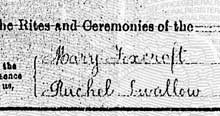 the Rites and Ceremonies of the
the
Mary Foxcroft
sence
us,
Rachel Swallow